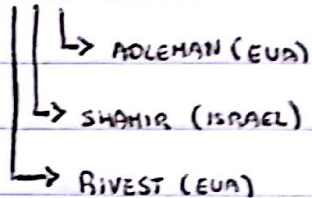 ADLEMAN (EUA)
SHAMIR (ISRAEL)
RIVEST (EUA)